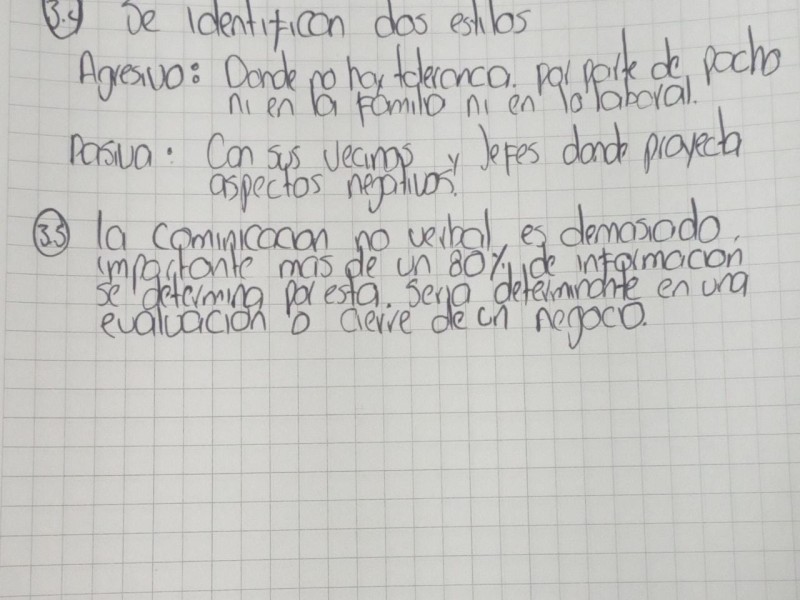 3.4 Se identifican dos estilos
Agresivo: Donde no hay tolerancia. por parte de pocho
ni en la familia ni en lo laboral.
Pasiva: Con sus vecinos y Jefes donde proyecta
aspectos negativos.
3.5 la cominicacion no verbal es demasiado
importante mas de un 80% de informacion
se determina por esta. Seria determinante en una
evaluación o cierre de un negoco.